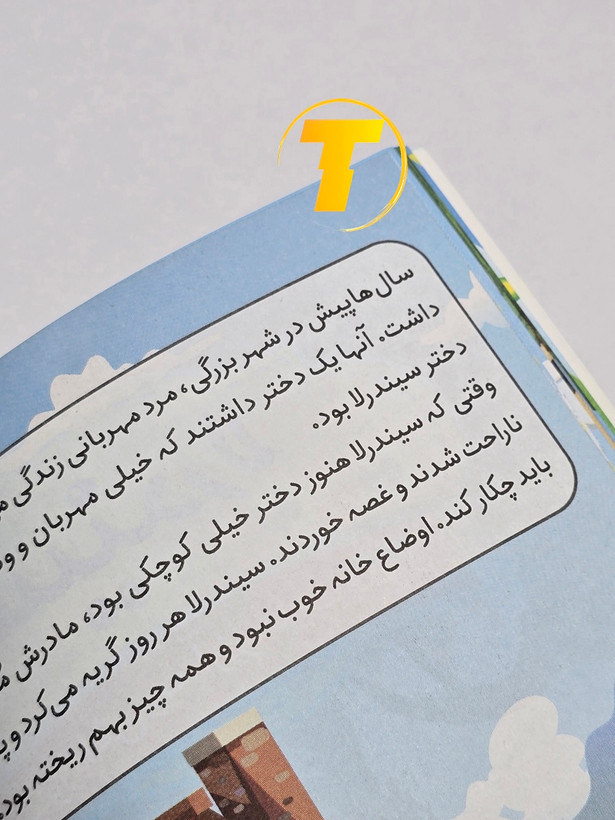 T
سال‌ها پیش در شهر بزرگی، مرد مهربانی زندگی
داشت. آنها یک دختر داشتند که خیلی مهربان و
دختر سیندرلا بود.
وقتی که سیندرلا هنوز دختر خیلی کوچکی بود، مادرش
ناراحت شدند و غصه خوردند. سیندرلا هر روز گریه می‌کرد و
باید چکار کند. اوضاع خانه خوب نبود و همه چیز بهم ریخته بود.